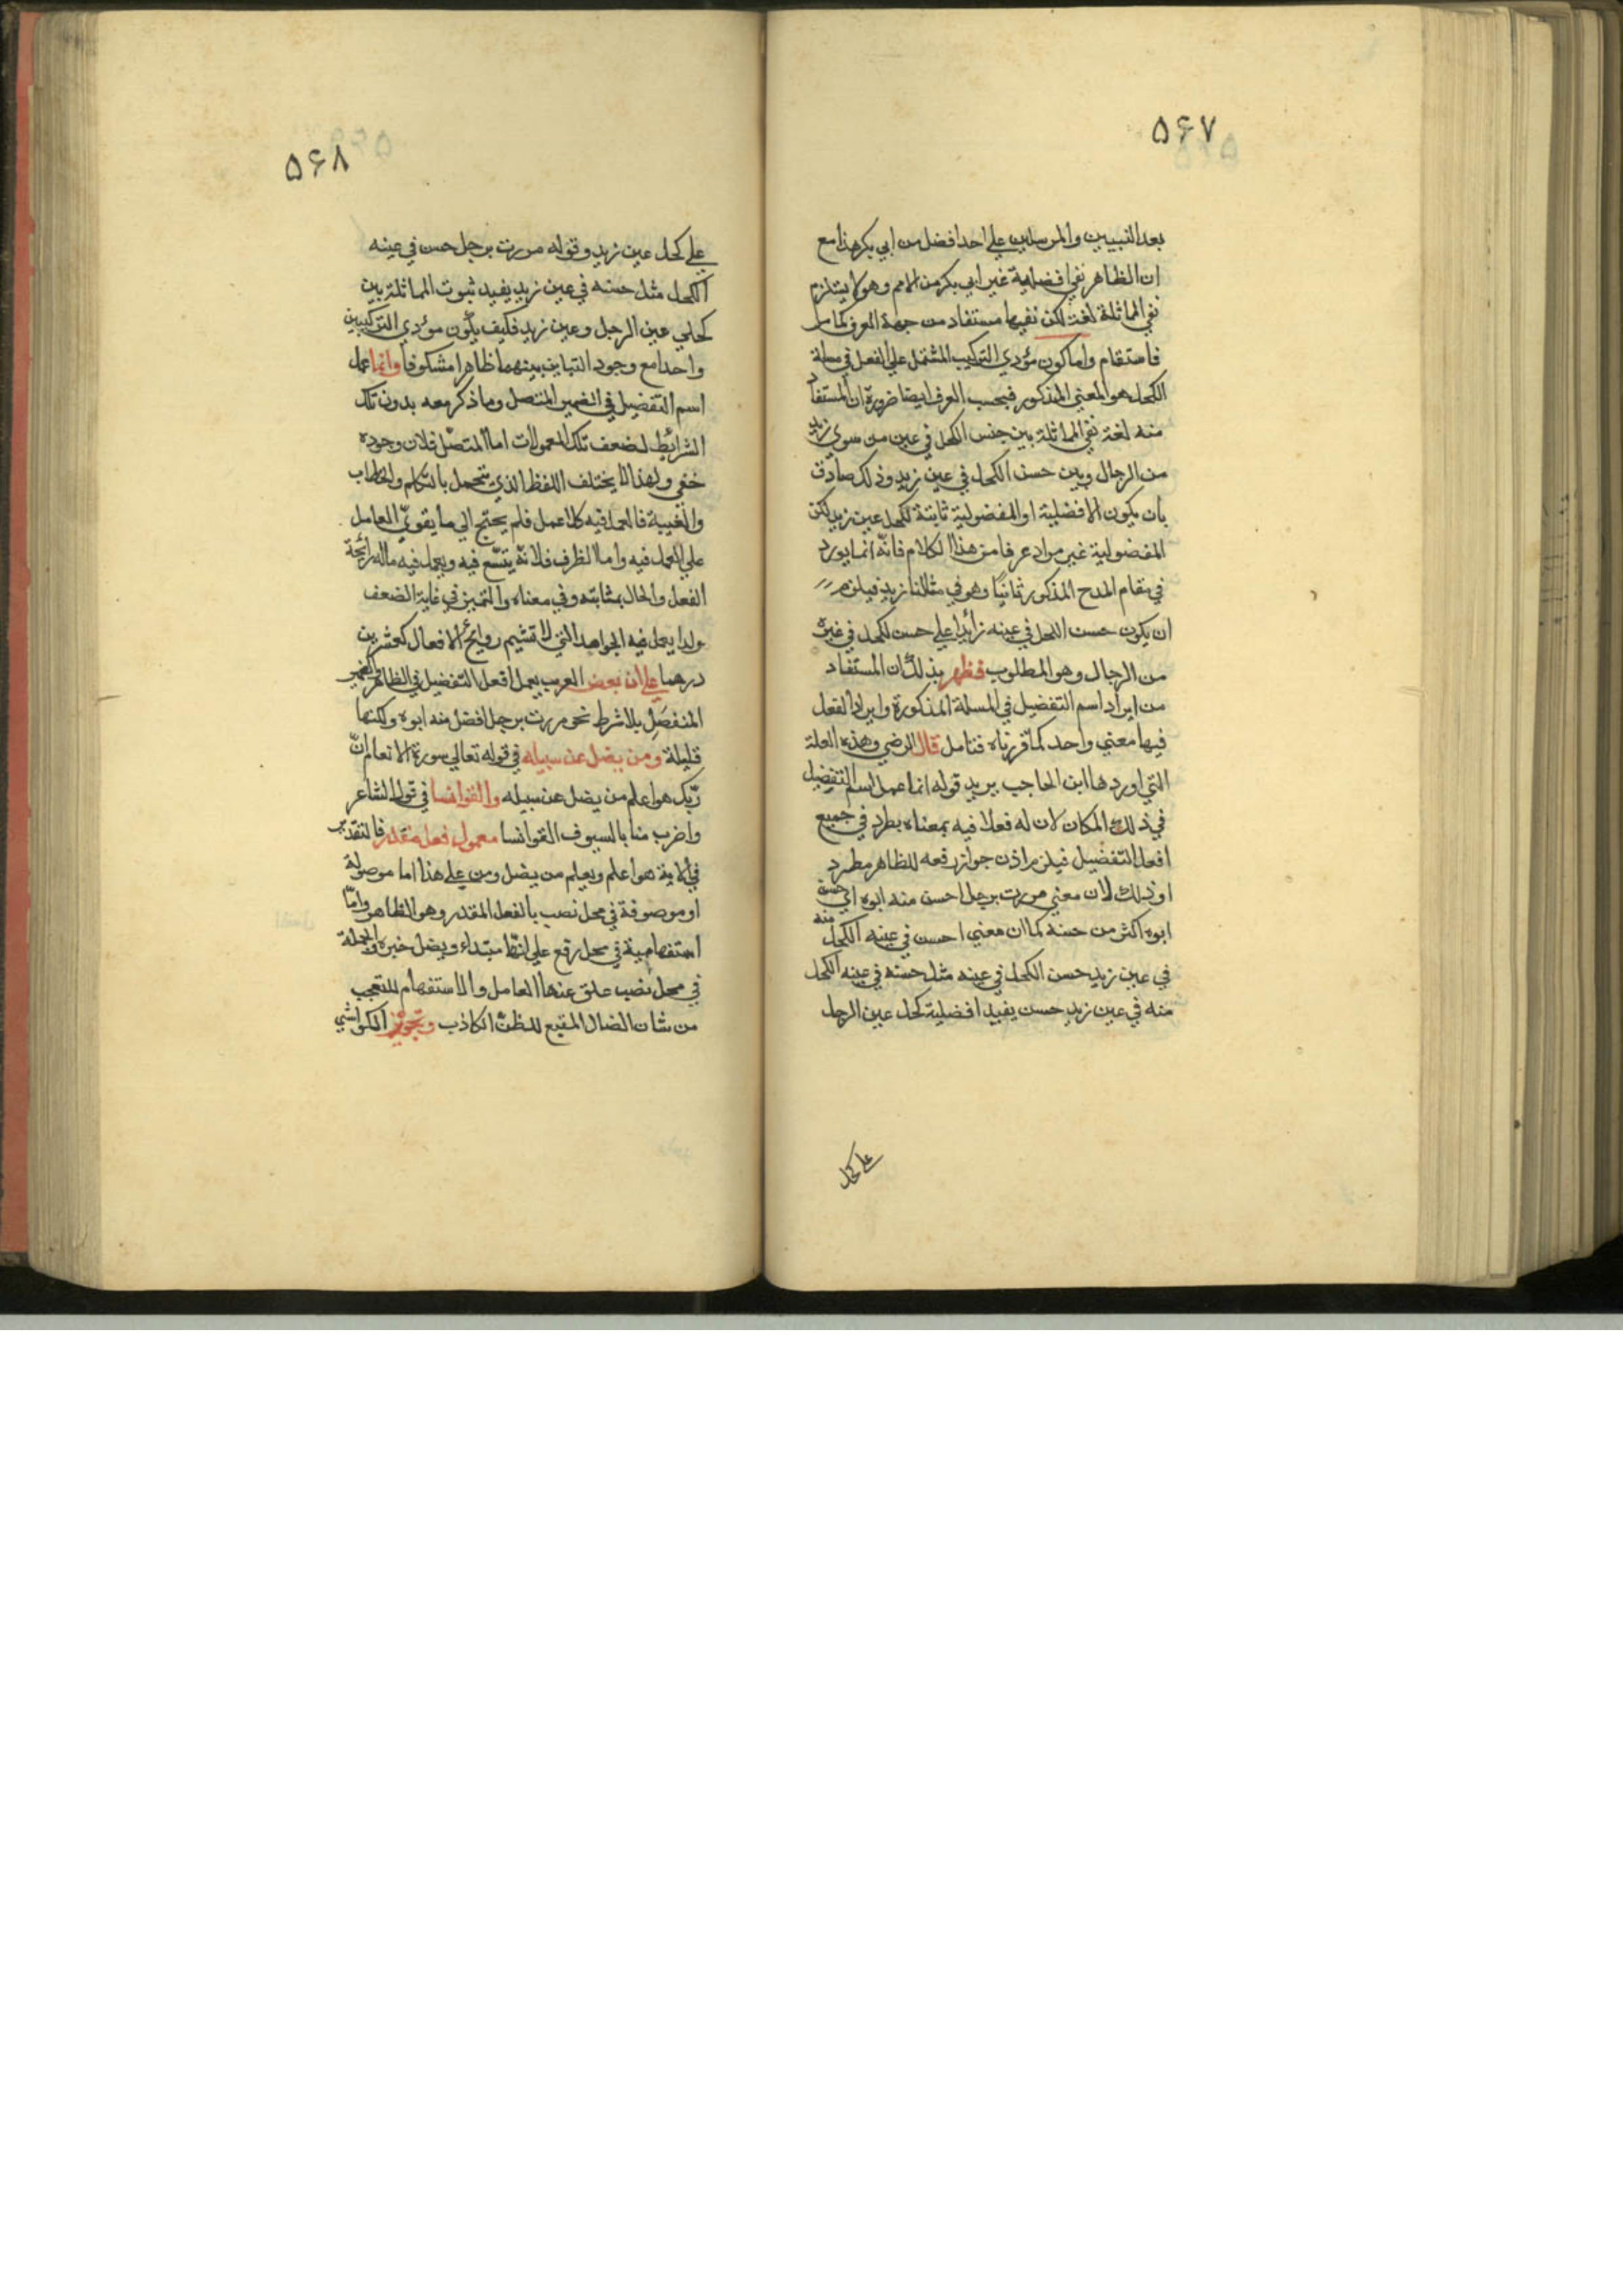 ۵۶۷
بعد النبيين والمرسلين على احد افضل من ابي بكر هذا مع
ان الظاهر نفي افضلية غير ابي بكر من الامم وهو لا يستلزم
نفي المماثلة لغة لكن نفيها مستفاد من جهة العرف كما مر
فاستقام واما كون مؤدي التركيب المشتمل على الفعل في مسئلة
الكحل هو المعني المذكور فبحسب العرف ايضا ضرورة ان المستفاد
منه لغة نفي المماثلة بين جنس الكحل في عين من سوي زيد
من الرجال وبين حسن الكحل في عين زيد وذلك صادق
بان يكون الافضلية او المفضولية ثابتة لكحل عين زيد لكن
المفضولية غير مراد عرفا من هذا الكلام فانه انما يورد
في مقام المدح المذكور ثانيا وهو في مثالنا زيد فيلزم
ان يكون حسن الكحل في عينه زائدا على حسن لكحل في غيره
من الرجال وهو المطلوب فظهر بذلك ان المستفاد
من ايراد اسم التفضيل في المسئلة المذكورة وايراد الفعل
فيها معني واحد كما قررناه فتامل قال الرضي وهذه العلة
التي اوردها ابن الحاجب يريد قوله انما عمل اسم التفضيل
في ذلك المكان لان له فعلا فيه بمعناه يطرد في جميع
افعل التفضيل فيلزم اذن جواز رفعه للظاهر مطرد
او ذلك لان معني مررت برجل احسن منه ابوه اي حسن
ابوه اكثر من حسنه كما ان معني احسن في عينه الكحل منه
في عين زيد حسن الكحل في عينه مثل حسنه في عينه الكحل
منه في عين زيد حسن يفيد افضلية كحل عين الرجل
على كحل
۵۶۸
على كحل عين زيد وقوله مررت برجل حسن في عينه
الكحل مثل حسنه في عين زيد يفيد ثبوت المماثلة بين
كحلي عين الرجل وعين زيد فكيف يكون مؤدي التركيبين
واحدا مع وجود التباين بينهما ظاهرا مكشوفا وانما عمل
اسم التفضيل في الضمير المتصل وما ذكر معه بدون تلك
الشرائط لضعف تلك المعمولات اما المتصل فلان وجوده
خفي ولهذا لا يختلف اللفظ الذي يتحمل بالتكلم والخطاب
والغيبة فالعمل فيه كلا عمل فلم يحتج الي ما يقوي العامل
على العمل فيه واما الظرف فلانه يتسع فيه ويعمل فيه ماله رائحة
الفعل والحال بمثابته وفي معناه والتميز في غاية الضعف
ولذا يعمل فيه الجوامد التي لا تشيم روايح الافعال كعشرين
درهما على ان بعض العرب يعمل افعل التفضيل في الظاهر والضمير
المنفصل بلا شرط نحو مررت برجل افضل منه ابوه ولكنها
قليلة ومن يضل عن سبيله في قوله تعالي سورة الانعام ان
ربك هو اعلم من يضل عن سبيله والقوانسا في قول الشاعر
واضرب منا بالسيوف القوانسا معمول فعل مقدر فالتقدير
في الاية هو اعلم ويعلم من يضل ومن على هذا اما موصولة
او موصوفة في محل نصب بالفعل المقدر وهو الظاهر واما
استفهامية في محل رفع على انها مبتداء ويضل خبره والجملة
في محل نصب علق عنها العامل والاستفهام للتعجب
من شان الضال المتبع للظن الكاذب وتجويز الكواشي